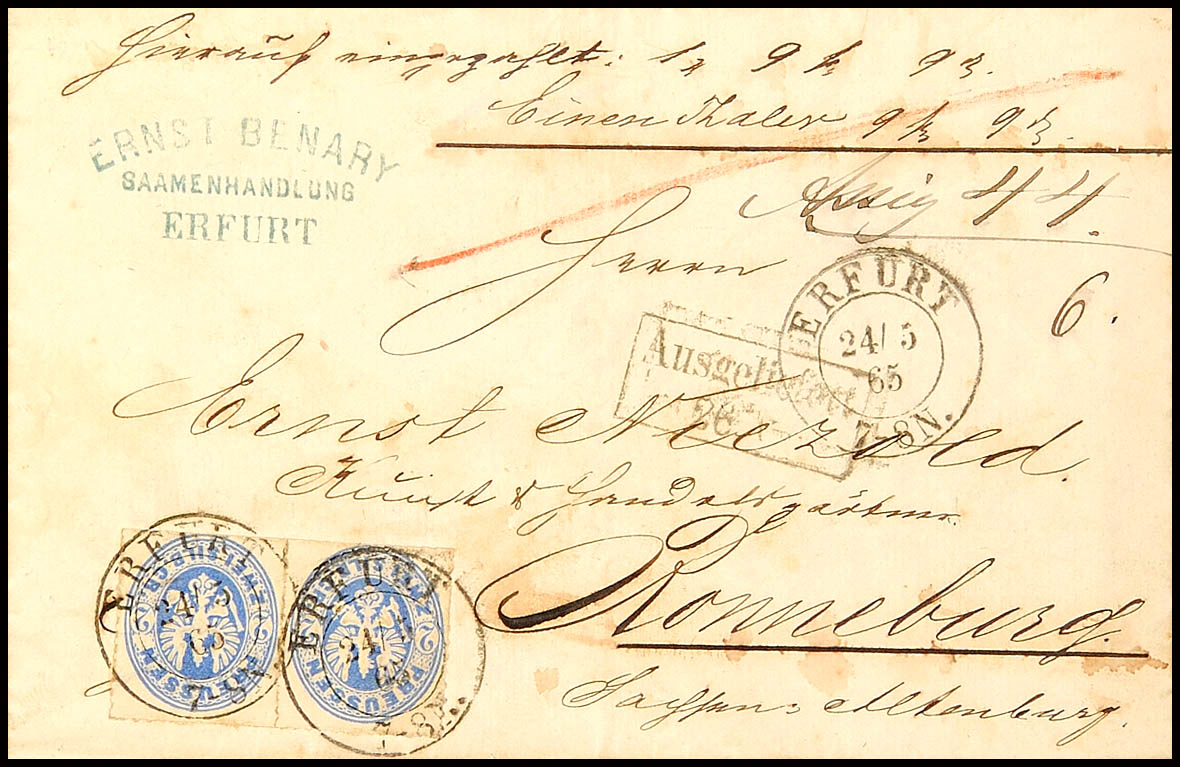 Hierauf eingezahlt: 1 9 9
Einen Thaler 9 9
ERNST BENARY
SAAMENHANDLUNG
ERFURT
44.
Herrn
6.
ERFURT
24/5
65
7-8N.
Ausgeliefert
26
Ernst Niezold
Kunst & Handelsgärtner.
Ronneburg.
Sachsen-Altenburg.
ERFURT
24/5
65
7-8N
ZWEI SILBERGR.
2 PREUSSEN 2
ERFURT
24/5
65
7-8N.
PREUSSEN 2